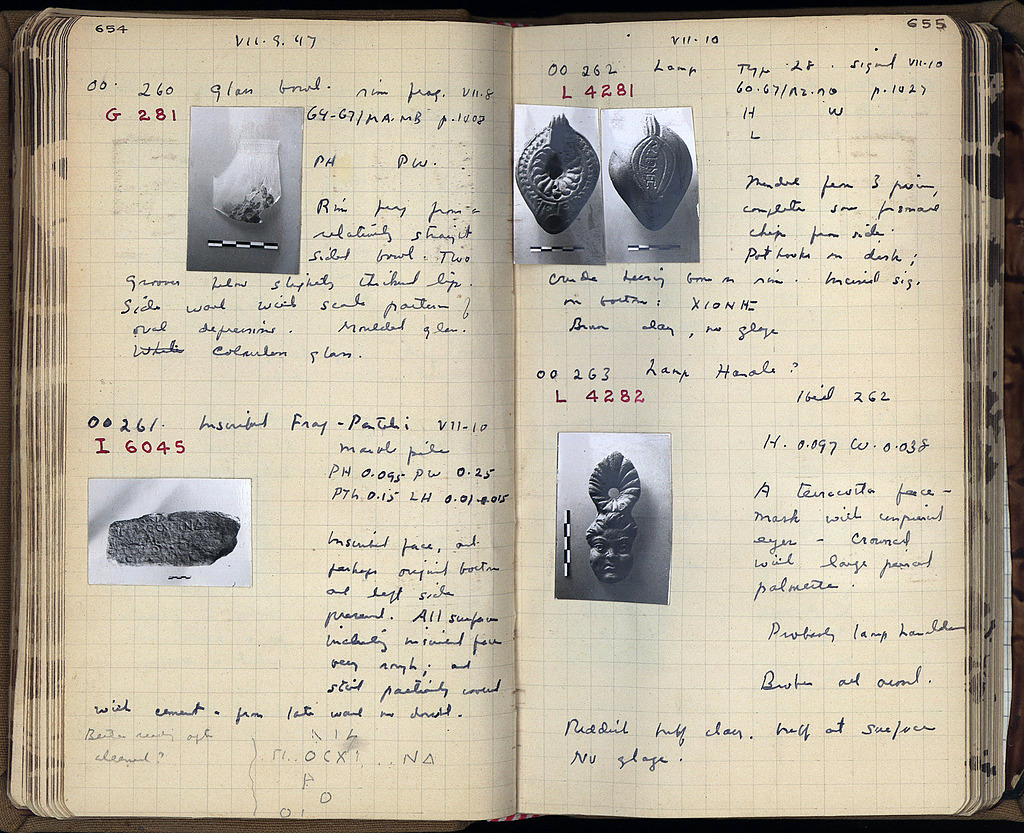 654
VII.9.47
OO. 260 Glass bowl. rim frag. VII.8
G 281
p.1402
PH PW.
Rim frag from a
relatively straight
sided bowl. Two
Grooves below slightly thickened lip.
Side wall with scale pattern of
oval depressions. Moulded glass.
White Colourless glass.
OO 261. Inscribed Frag - Pentelic VII-10
I 6045
marble pile
PH 0.095 PW 0.25
PTh 0.15 LH 0.01-0.015
Inscribed face, and
perhaps original bottom
and left side
preserved. All surfaces
including inscribed face
very rough; and
still partially covered
with cement - from late wall no doubt.
Better reading after
cleaned?
ΟϹΧΙ . . . ΝΔ
Α
Ο
655
VII-10
OO 262 Lamp Type 28. signed VII-10
L 4281
p.1027
H W
L
Mended from 3 pieces,
complete save for small
chip from side.
on disk;
on rim. Incised sig.
on bottom: ΧΙΟΝΗΣ
Brown clay, no glaze
OO 263 Lamp Handle?
L 4282
Ibid 262
H. 0.097 W. 0.038
A terracotta face-
mask with unpierced
eyes - Crowned
with large pierced
palmette.
Probably lamp handle
Broken all around.
Reddish buff clay. buff at surface
No glaze.